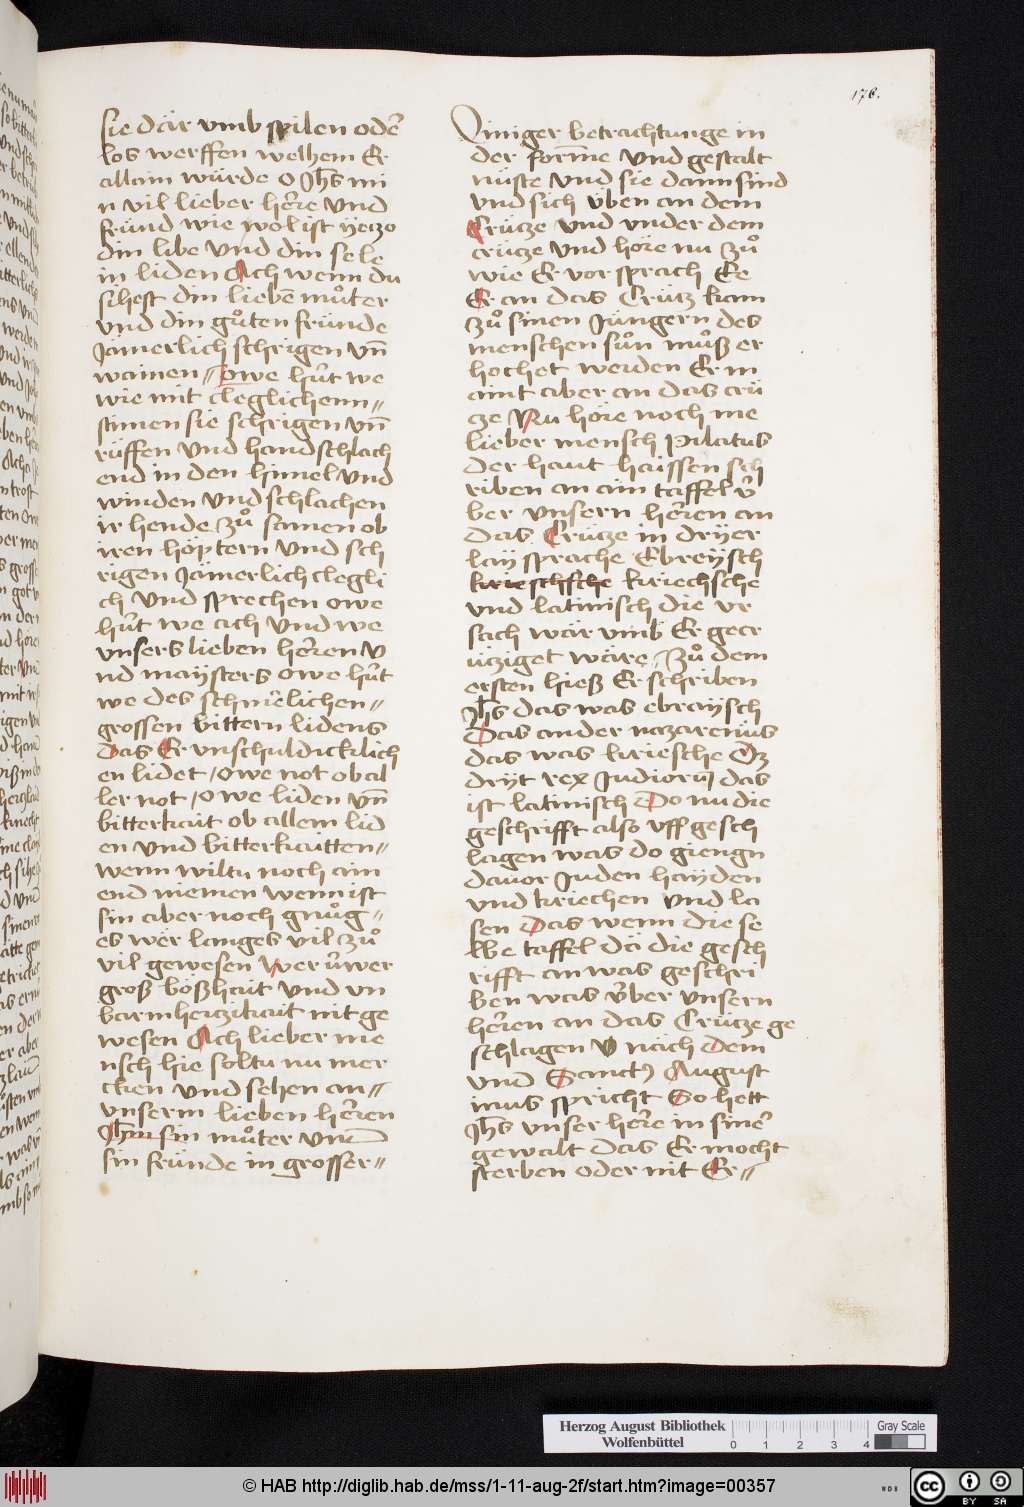 176.
sie där vmb spilen oder̄
los werffen welhem Er
allain würde O Jh̄s mi
n vil lieber her̄e vnd
fründ wie wol ist yeczo
din libe vnd din sele
in liden Ach wenn du
sihest din liebē muͦter
vnd din guͦten fründe
Jämerlich schrigen vn̄
wainen // owe hüt we
wie mit cleglichenn //
stimen sie schrigen vn̄
rüffen vnd handschlach
end in den himel vnd
winden vnd schlachen
ir hende zuͦ samen ob
iren höptern vnd sch
rigen Jämerlich clegli
ch vnd sprechen owe
hüt we ach vnd we
vnsers lieben her̄en v
nd maysters owe hüt
we des schmelichen //
grossen bittern lidens
Das Er vnschuldicklich
en lidet / owe not ob al
ler not / owe liden vn̄
bitterkait ob allem lid
en vnd bitterkaitten //
wenn wiltu noch ain
end niemen wenn ist
sin aber noch gnuͦg //
es wer langes vil zuͦ
vil gewesen wer üwer
groß bößhait vnd vn
barmherczikait nit ge
wesen Ach lieber me
nsch hie soltu nu mer
cken vnd sehen an //
vnserm lieben her̄en
Jh̄m sin muͦter vnd
sin fründe in grosser //
Qiniger betrachtunge in
der form̄e vnd gestalt
nüste vnd sie dann sind
vnd sich üben an dem
Crücze vnd vnder dem
crücze vnd höre nu zuͦ
wie Er vor sprach Ee
Er an das Crücz kam
zuͦ sinen Jüngern des
menschen suͦn muͦß er
höchet werden Er m
aint aber an das crü
cze Nu höre noch me
lieber mensch Pilatus
der haut haissen sch
riben an ain taffel ü
ber vnsern her̄en an
das Crücze in dryer
lay sprache Ebreysch
krieschsche kriechsche
vnd latinisch die vr
sach wär vmb Er gecr
üziget wäre // Zuͦ dem
ersten hieß Er schriben
Jh̄s das was ebraysch
Das ander nazarenus
das was kriesche Dz
dryt rex Judiorū das
ist latinisch Do nu die
geschrifft also vff gesch
lagen was do giengn
dauor Juden hayden
vnd kriechen vnd la
sen Das wenn die se
lbe taffel dä die gesch
rifft an was geschri
ben was über vnsern
her̄en an das Crücze ge
schlagen v näch Dem
vnd Sanctꝰ August
inus spricht So hett
Jh̄s vnser her̄e in siner̄
gewalt das Er mocht
sterben oder nit Er //
Herzog August Bibliothek
Wolfenbüttel
0 1 2 3 4
Gray Scale
© HAB http://diglib.hab.de/mss/1-11-aug-2f/start.htm?image=00357
WDB
cc BY SA